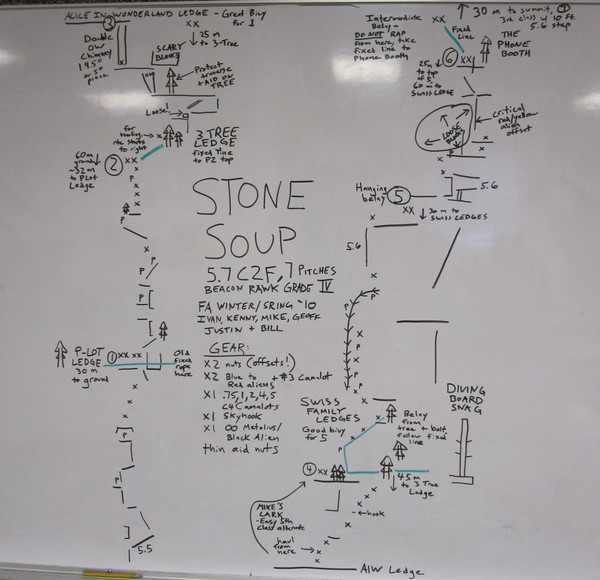 ALICE IN WONDERLAND LEDGE - Great Bivy for 1
3
XX
↓ 25 m to 3-Tree
Double OW Chimney
SCARY BLOCK!
Protect traverse + AID ON TREE
Loose!
for hauling
to right
3 TREE LEDGE
fixed line to P2 top
60m ↓ ground
~32m to P-Lot Ledge
2
XX
P
P
P
P
P
P
P
P-LOT LEDGE
30 m to ground
1
XX XX
Old fixed rope here
P
P
5.5
STONE SOUP
5.7 C2F, 7 PITCHES
BEACON RAWK GRADE IV
FA WINTER/SRING '10
IVAN, KENNY, MIKE, GEOFF
JUSTIN + BILL
GEAR:
X2 nuts (offsets!)
X2 Blue to Red aliens + #3 Camalot
X1 .75,1,2,4,5 C4 Camalots
X1 Skyhook
X1 00 Metolius/ Black Alien
thin aid nuts
Intermediate Belay -
DO NOT RAP from here, take fixed line to Phone Booth
XX
Fixed Line
↑ 30 m to summit,
3rd class w/ 10 ft. 5.6 step
7
THE PHONE BOOTH
6
XX
25m to top of 5,
60m to Swiss Ledges
LOOSE BLOCK
Critical red/yellow alien offset
Hanging belay
5
XX
↓ 30 m to Swiss LEDGES
5.6
5.6
P
P
P
P
P
SWISS FAMILY LEDGES
Good bivy for 5
Belay from tree + bolt
follow fixed line
DIVING BOARD SNAG
4
XX
P
↓ 45m to 3 Tree Ledge
MIKE'S LARK
- Easy 5th class alternate
← hook
haul from here →
AIW Ledge